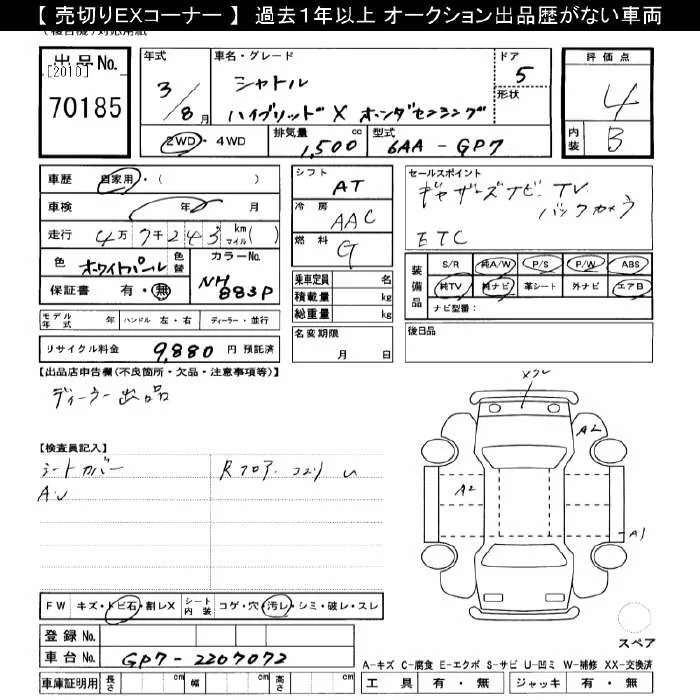 【 売切りEXコーナー 】 過去1年以上 オークション出品歴がない車両
出品No.
[2010]
70185
年式
3/8月
車名・グレード
シャトル
ハイブリッドX ホンダセンシング
ドア
5
形状
2WD・4WD
排気量
1,500 cc
型式
6AA-GP7
評価点
4
内装
B
車歴 自家用・( )
車検 年 月
走行 4万7千243 km マイル( )
色 ホワイトパール 色替
カラーNo.
NH
883P
保証書 有・無
シフト AT
冷房 AAC
燃料 G
セールスポイント
ギャザーズナビ TV
バックカメラ
ETC
装備品
S/R 純A/W P/S P/W ABS
純TV 純ナビ 革シート 外ナビ エアB
ナビ型番:
乗車定員 名
積載量 kg
総重量 kg
モデル年式 年 ハンドル 左・右 ディーラー・並行
名変期限
月 日
後日品
リサイクル料金 9,880 円 預託済
【出品店申告欄(不良箇所・欠品・注意事項等)】
ディーラー出品
【検査員記入】
シートカバー
AU
Rフロア コスリ U
Xワレ
A2
A2
A1
FW キズ・トビ石・割レX シート内装 コゲ・穴・汚レ・シミ・破レ・スレ
スペア
登録No.
車台No. GP7-2207072
A-キズ C-腐食 E-エクボ S-サビ U-凹ミ W-補修 XX-交換済
車庫証明用 長さ cm 幅 cm 高さ cm
工具 有・無 ジャッキ 有・無